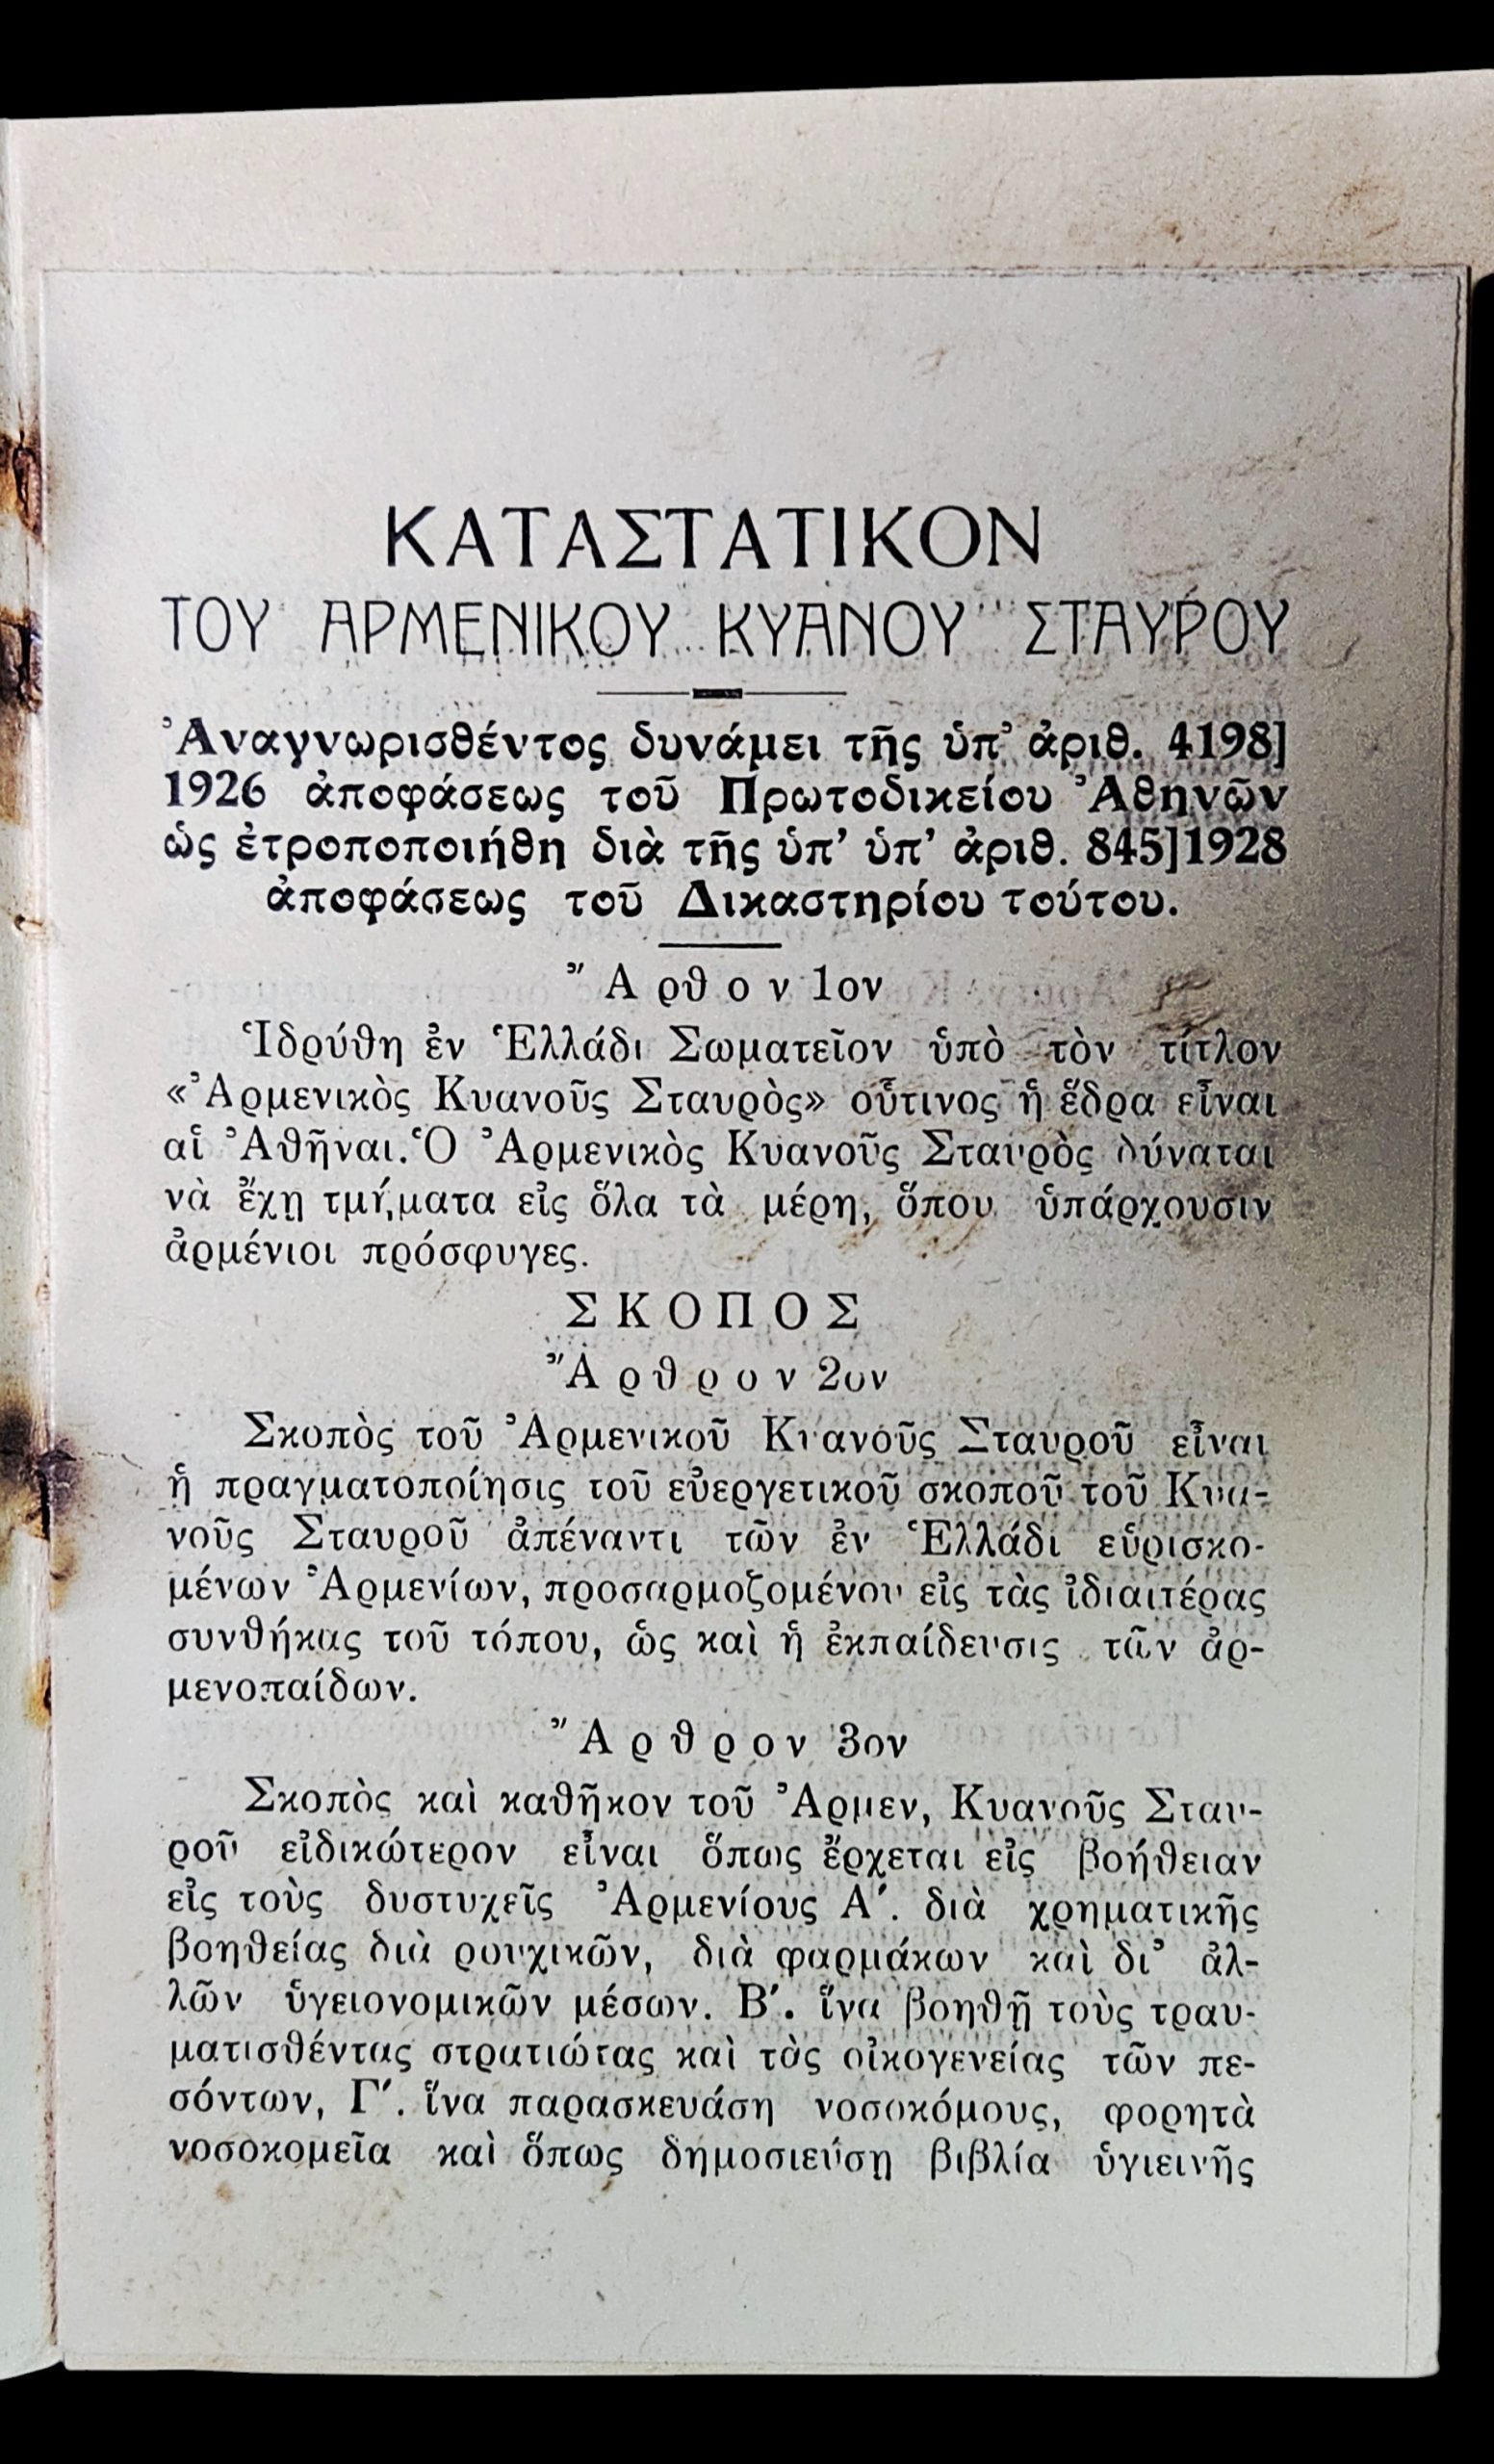 ΚΑΤΑΣΤΑΤΙΚΟΝ
ΤΟΥ ΑΡΜΕΝΙΚΟΥ ΚΥΑΝΟΥ ΣΤΑΥΡΟΥ
Ἀναγνωρισθέντος δυνάμει τῆς ὑπ’ ἀριθ. 4198]
1926 ἀποφάσεως τοῦ Πρωτοδικείου Ἀθηνῶν
ὡς ἐτροποποιήθη διὰ τῆς ὑπ’ ὑπ’ ἀριθ. 845]1928
ἀποφάσεως τοῦ Δικαστηρίου τούτου.
Ἄρθον 1ον
Ἱδρύθη ἐν Ἑλλάδι Σωματεῖον ὑπὸ τὸν τίτλον
«Ἀρμενικὸς Κυανοῦς Σταυρὸς» οὗτινος ἡ ἕδρα εἶναι
αἱ Ἀθῆναι. Ὁ Ἀρμενικὸς Κυανοῦς Σταυρὸς δύναται
νὰ ἔχῃ τμήματα εἰς ὅλα τὰ μέρη, ὅπου ὑπάρχουσιν
ἀρμένιοι πρόσφυγες.
ΣΚΟΠΟΣ
Ἄρθρον 2ον
Σκοπὸς τοῦ Ἀρμενικοῦ Κυανοῦς Σταυροῦ εἶναι
ἡ πραγματοποίησις τοῦ εὐεργετικοῦ σκοποῦ τοῦ Κυα-
νοῦς Σταυροῦ ἀπέναντι τῶν ἐν Ἑλλάδι εὑρισκο-
μένων Ἀρμενίων, προσαρμοζομένου εἰς τὰς ἰδιαιτέρας
συνθήκας τοῦ τόπου, ὡς καὶ ἡ ἐκπαίδευσις τῶν ἀρ-
μενοπαίδων.
Ἄρθρον 3ον
Σκοπὸς καὶ καθῆκον τοῦ Ἀρμεν, Κυανοῦς Σταυ-
ροῦ εἰδικώτερον εἶναι ὅπως ἔρχεται εἰς βοήθειαν
εἰς τοὺς δυστυχεῖς Ἀρμενίους Α΄. διὰ χρηματικῆς
βοηθείας διὰ ρουχικῶν, διὰ φαρμάκων καὶ δι’ ἀλ-
λῶν ὑγειονομικῶν μέσων. Β΄. ἵνα βοηθῇ τοὺς τραυ-
ματισθέντας στρατιώτας καὶ τὰς οἰκογενείας τῶν πε-
σόντων, Γ΄. ἵνα παρασκευάσῃ νοσοκόμους, φορητὰ
νοσοκομεῖα καὶ ὅπως δημοσιεύσῃ βιβλία ὑγιεινῆς